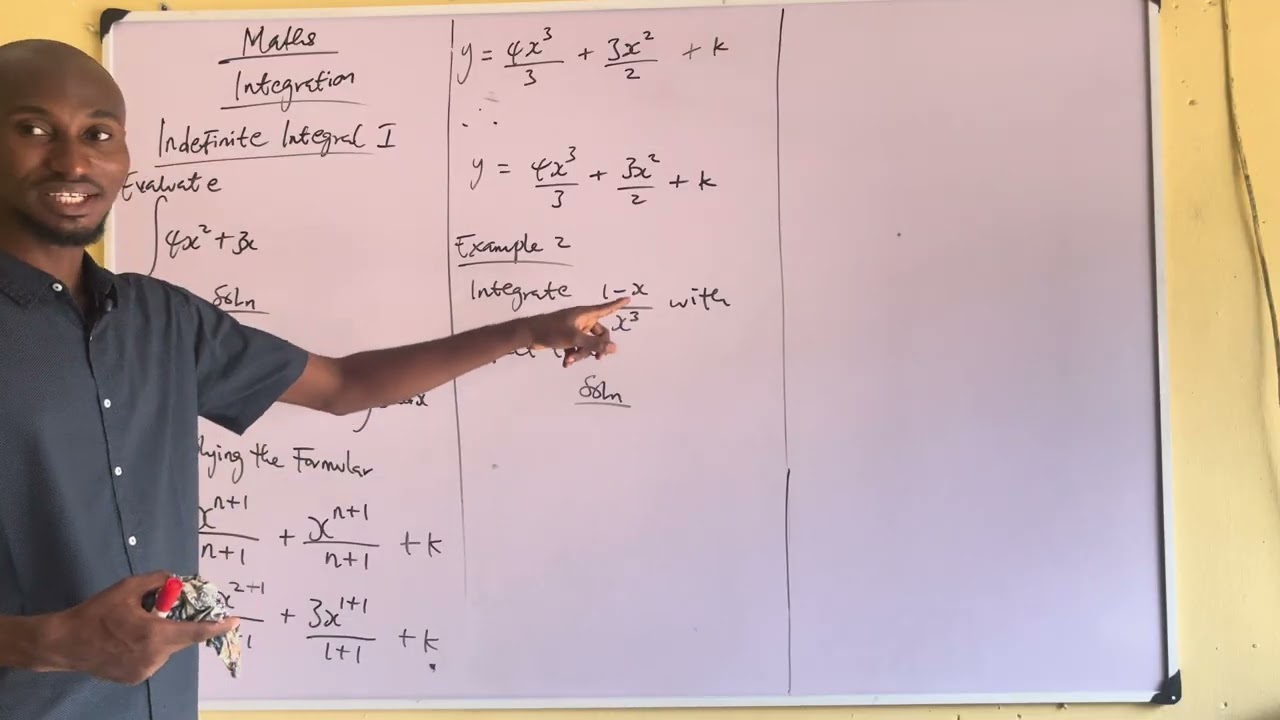 Maths
Integration
Indefinite Integral I
Evaluate
∫4x² + 3x
Soln
the Formular
x^(n+1)/(n+1) + x^(n+1)/(n+1) + k
x^(2+1) + 3x^(1+1)/(1+1) + k
y = 4x³/3 + 3x²/2 + k
∴
y = 4x³/3 + 3x²/2 + k
Example 2
Integrate (1-x)/x³ with
Soln